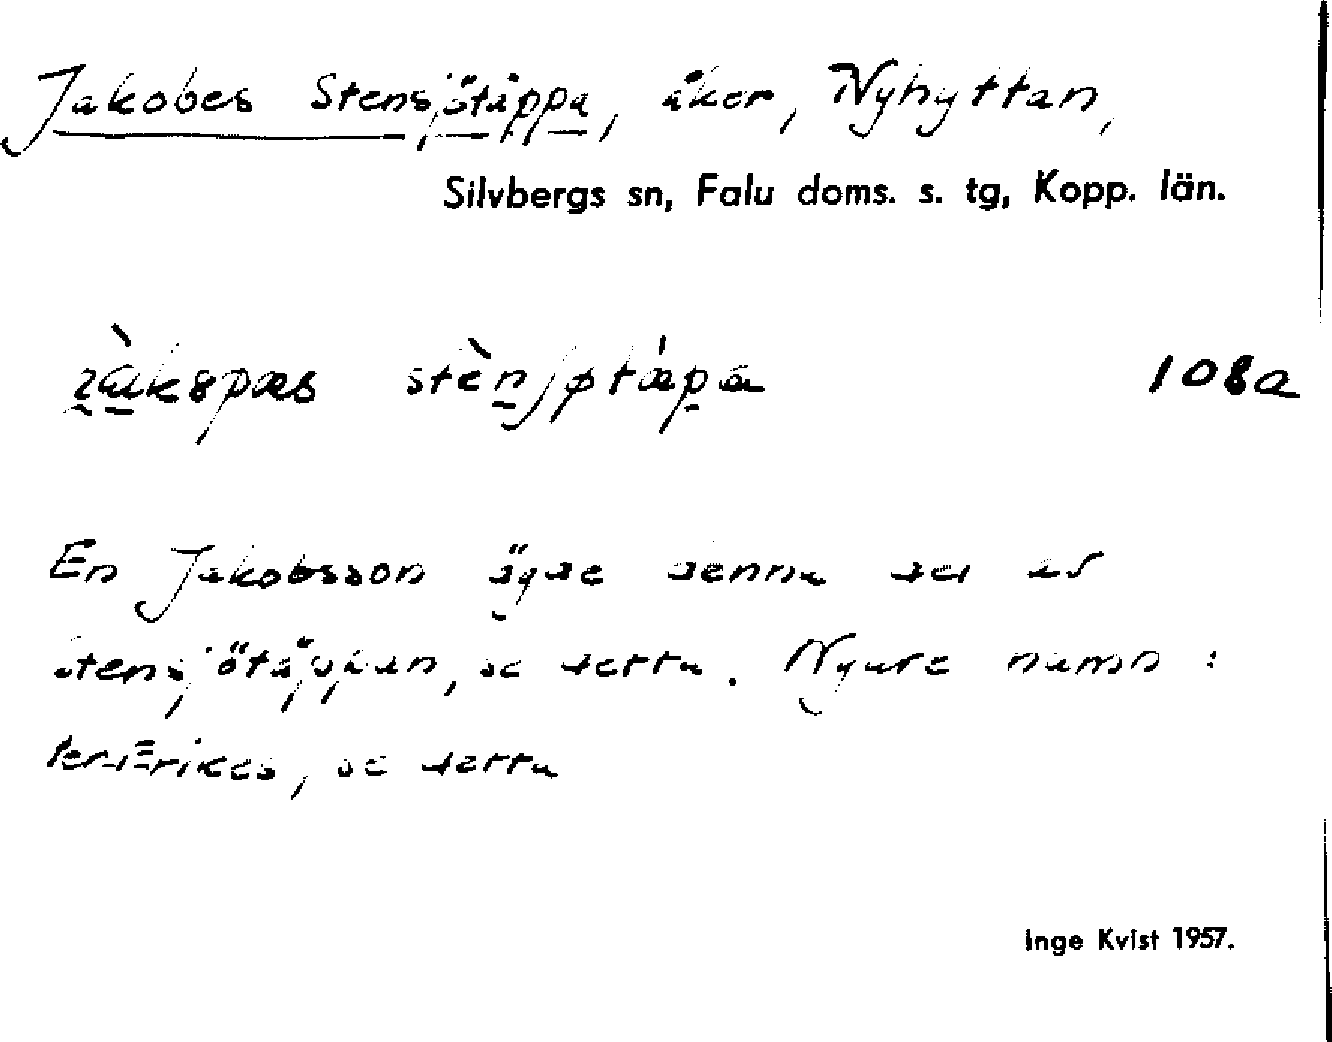 Jakobes Stensjötäppa, åker, Nyhyttan,
Silvbergs sn, Falu doms. s. tg, Kopp. län.
108a
En Jakobsson ägde denna del av
Stensjötäppan, se detta. Nyare namn:
Per-Erikes, se detta
Inge Kvist 1957.